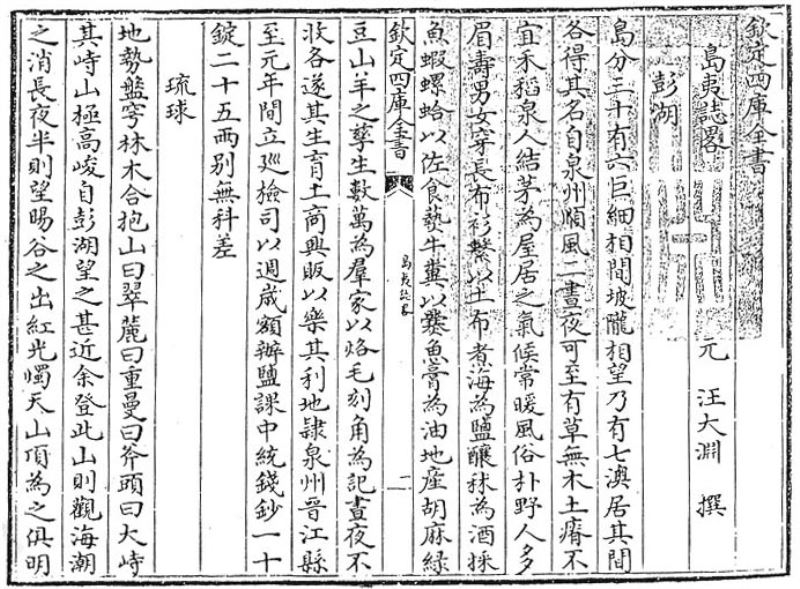 欽定四庫全書
島夷誌畧
元 汪大淵 撰
彭湖
島分三十有六巨細相間坡隴相望乃有七澳居其間
各得其名自泉州順風二晝夜可至有草無木土瘠不
宜禾稻泉人結茅為屋居之氣候常暖風俗朴野人多
眉壽男女穿長布衫繫以土布煮海為鹽釀秫為酒採
魚蝦螺蛤以佐食爇牛糞以爨魚膏為油地產胡麻緑
欽定四庫全書
島夷誌畧
一
豆山羊之孳生數萬為羣家以烙毛刻角為記晝夜不
收各遂其生育土商興販以樂其利地隷泉州晉江縣
至元年間立廵檢司以週歲額辦鹽課中統錢鈔一十
錠二十五兩别無科差
琉球
地勢盤穹林木合抱山曰翠麓曰重曼曰斧頭曰大峙
其峙山極高峻自彭湖望之甚近余登此山則觀海潮
之消長夜半則望暘谷之出紅光燭天山頂為之俱明